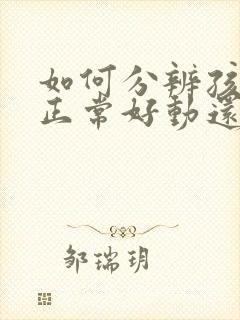 如何分辨孩
正常好動還
邹瑞玥